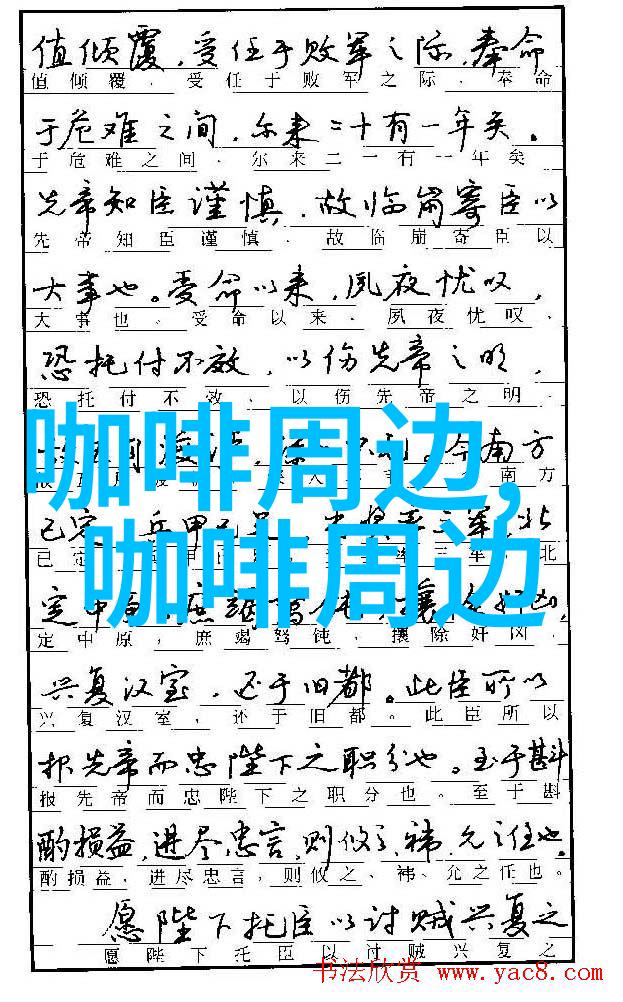 值倾覆，受任于败军之际，奉命
值倾覆．受任于败军之际．奉命
于危难之间，尔来二十有一年矣。
于危难之间．尔来二一有一年矣
先帝知臣谨慎，故临崩寄臣以
先帝知臣谨慎．故临崩寄臣以
大事也。受命以来，夙夜忧叹，
大事也．受命以来．夙夜忧叹．
恐托付不效，以伤先帝之明，
恐托付不效．以伤先帝之明．
今南方
南方
咖啡周边,
已定 兵甲已足 三军,北
已定 北
咖啡周边
定中原
定中原，庶竭驽钝，攘除奸凶，
兴复汉室，还于旧都。此臣所以
兴复汉室，还于旧都。此臣所以
报先帝而忠陛下之职分也。至于斟
报先帝而忠陛下之职分也。至于斟
酌损益，进尽忠言，则攸之、祎、允之任也。
酌损益．进尽忠言，则攸之、祎、允之任也。
愿陛下托臣以讨贼兴复之
愿陛下托臣以讨贼兴复之
书法欣赏 www.yac8.com